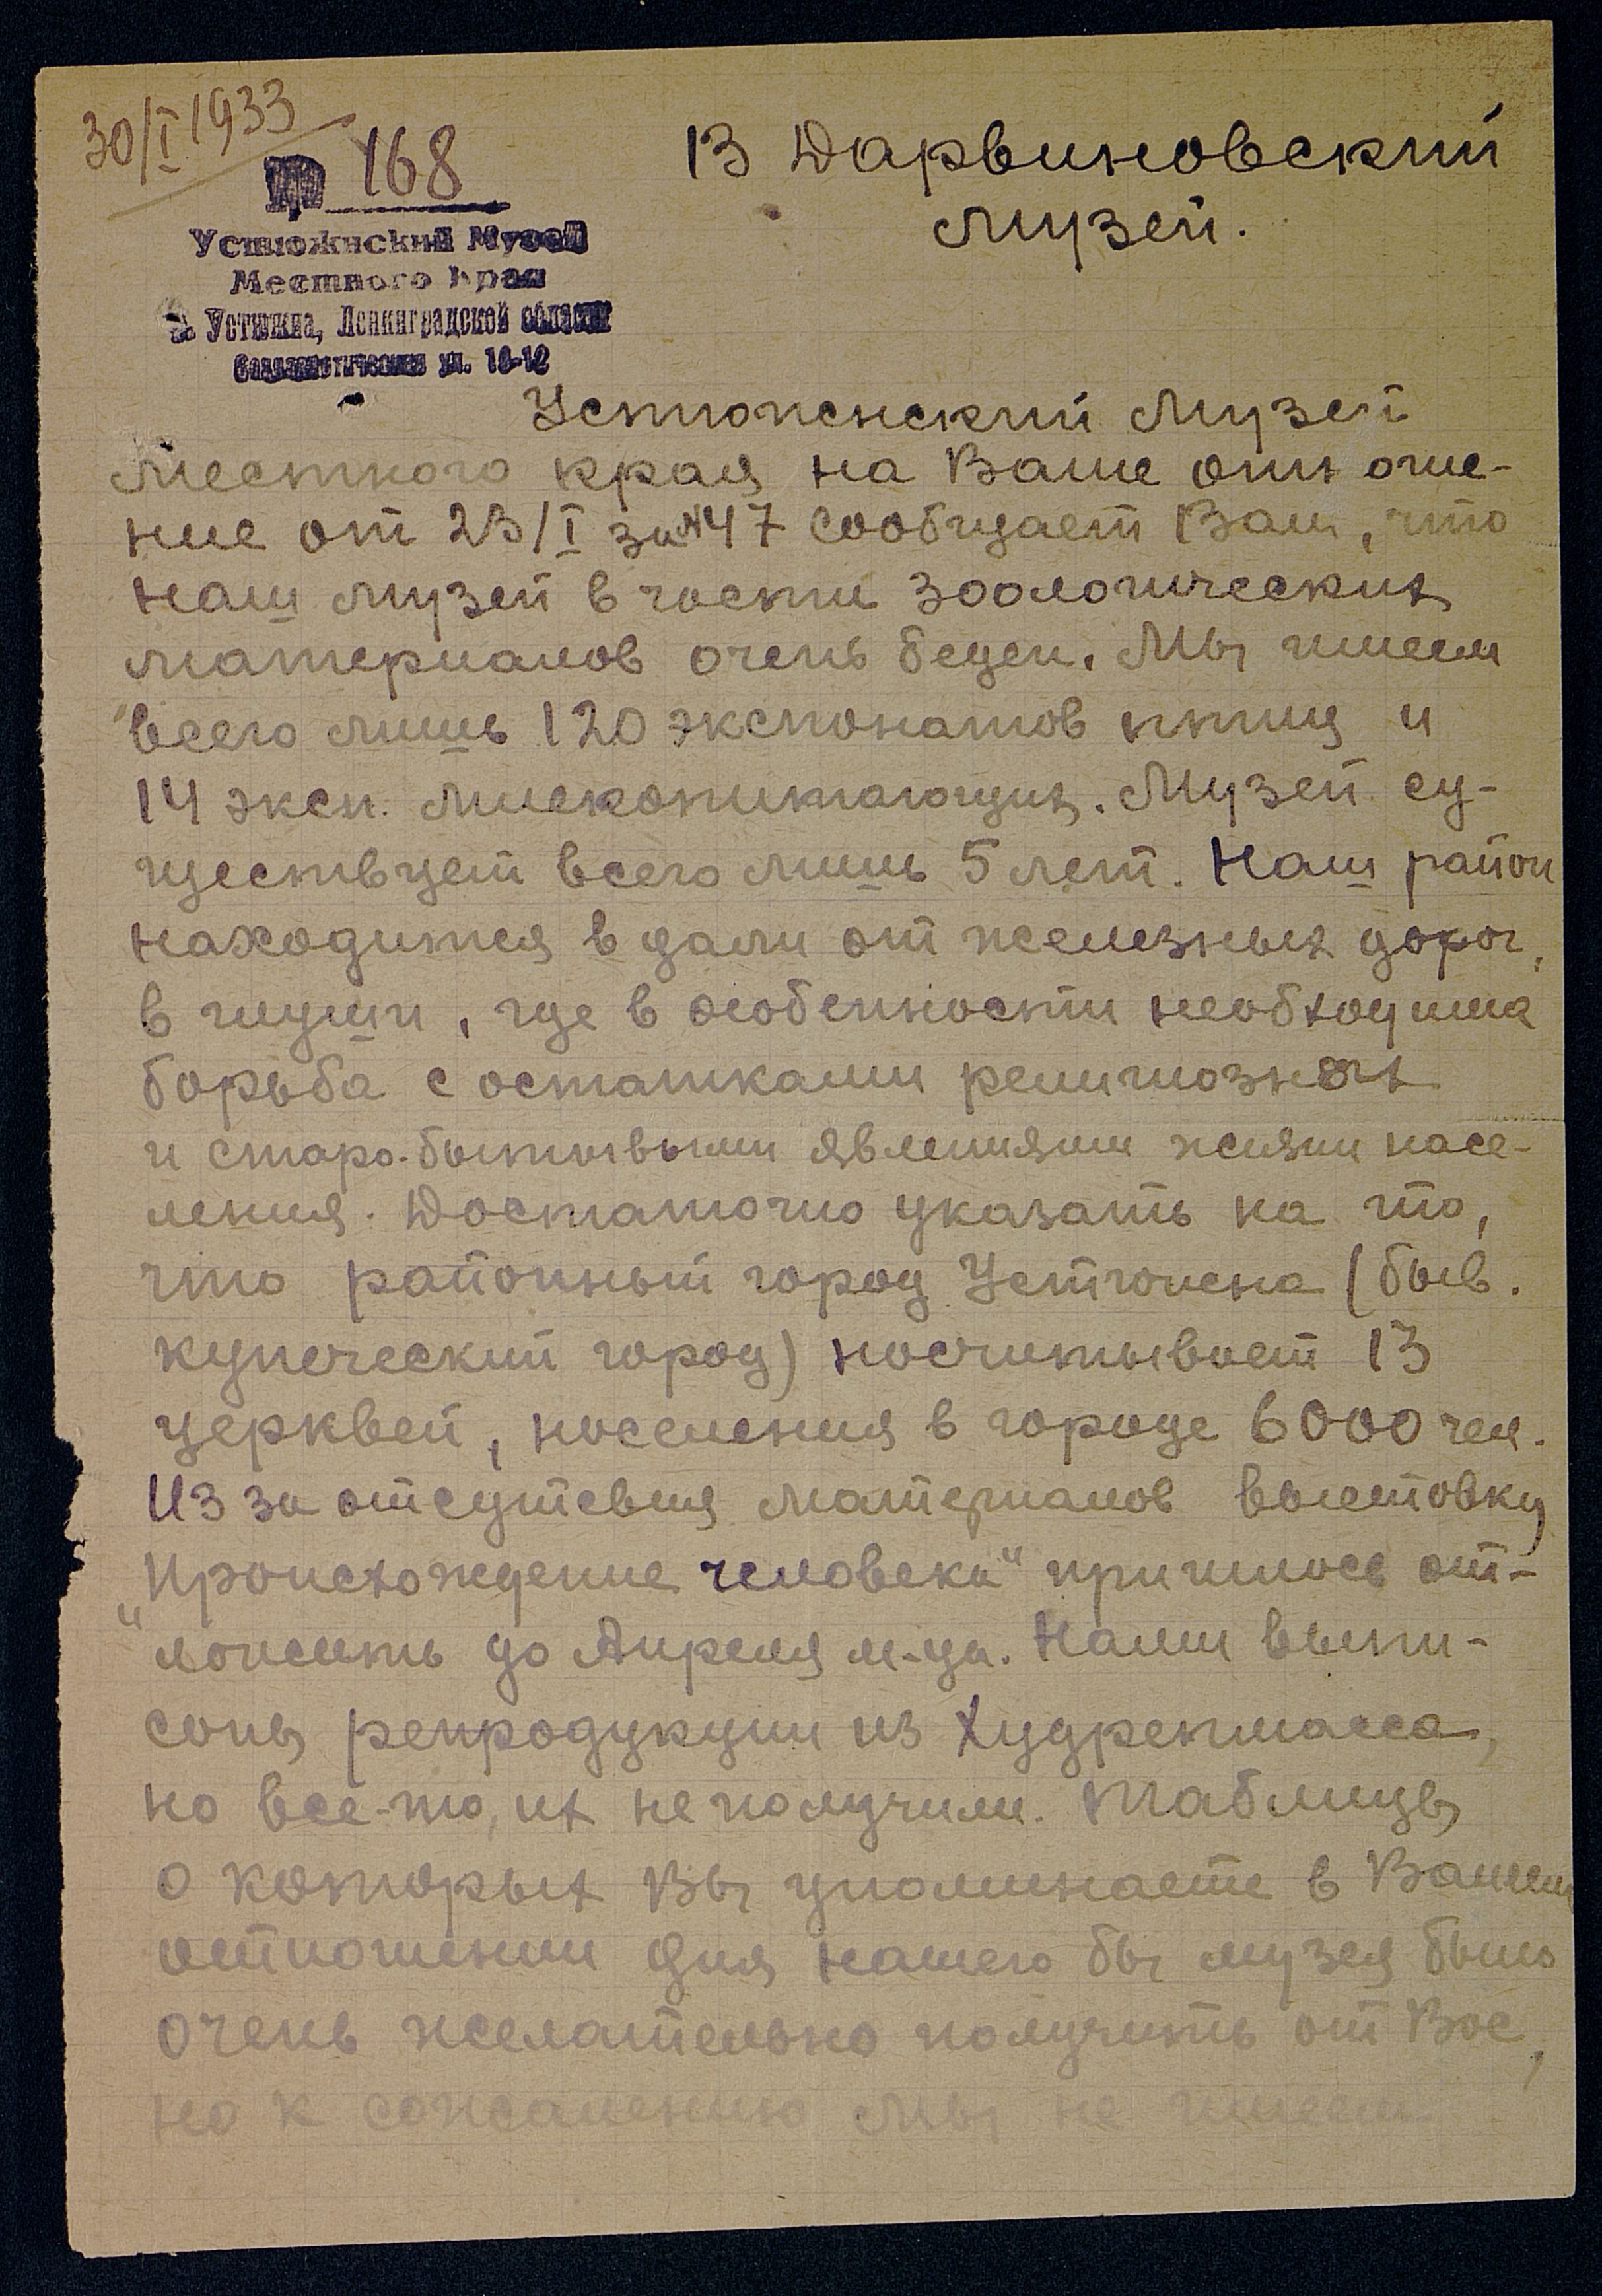 30/I 1933
168
Устюжнский Музей
Местного Края
г. Устюжна, Ленинградской области
Социалистическая ул. 10-12
В Дарвиновский
музей.
Устюженский Музей
местного края на Ваше отноше-
ние от 23/I за №47 сообщает Вам, что
наш музей в части зоологических
материалов очень беден. Мы имеем
всего лишь 120 экспонатов птиц и
14 эксп. млекопитающих. Музей су-
ществует всего лишь 5 лет. Наш район
находится в дали от железных дорог,
в глуши, где в особенности необходима
борьба с остатками религиозных
и старо-бытовыми явлениями жизни насе-
ления. Достаточно указать на то,
что районный город Устюжна (быв.
купеческий город) насчитывает 13
церквей, населения в городе 6000 чел.
Из за отсутсвия материалов выставку
„Происхождение человека" пришлось от-
ложить до Апреля м-ца. Нами выпи-
саны репродукции из Худрепмасса,
но все-то, их не получили. Таблицы
о которых Вы упоминаете в Вашем
отношении для нашего бы музея было
очень желательно получить от Вас,
но к сожалению мы не имеем